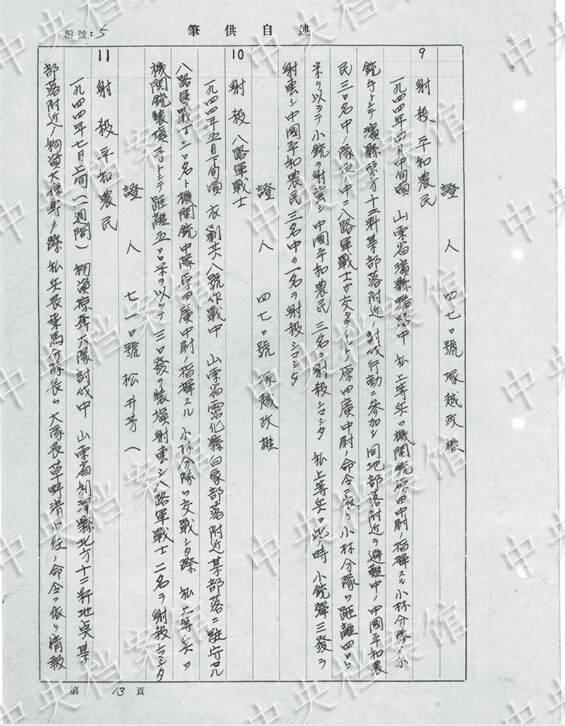 編號:5
筆供自述
證人 四七〇號 塚越政
9 射殺平和農民
一九四四年四月中旬頃 山東省濱縣 中 私上等兵ハ機関銃 中尉ノ指揮スル小林分隊ノ小
銃手トシテ濱縣 方十二粁某部落附近ノ討伐行動ニ参加シ同地部落附近ニ避難中ノ中國平和農
民三〇名中 ニ八路軍戦士ガ交 ト 原田廣中尉ノ命令ニ依リ小林分隊ハ距離四〇〇
米ヲ以ッテ小銃ヲ射 シ中國平和農民三名ヲ射殺シマシタ 私上等兵ハ此時小銃彈三發ヲ
射 シ中國平和農民三名中ノ一名ヲ射殺シマシタ
證人 四七〇號 塚越政雄
10 射殺八路軍戦士
一九四四年五月下旬頃 衣 八號作戦中 山東省霑化縣 家部落附近某部落ニ駐 セル
八路軍戦士 〇名ト機関銃中隊原田廣中尉ノ指揮スル小林分隊ハ交戦シタ際 私上等兵ハ
機関銃装填手トシテ距離五〇〇米ヲ以ッテ三〇發ヲ装填射 シ八路軍戦士二名ヲ射殺シマシタ
證人 七一〇號 松井芳一
11 射殺平和農民
一九四四年七月上旬(一週間) 物資掠奪大隊討伐中 山東省利津縣北方十二粁地奌某
部落附近ノ物資大掠奪ノ際 私兵長 馬分隊長ハ大隊長草野清少佐ノ命令ニ依リ情報
第13頁
中央档案馆